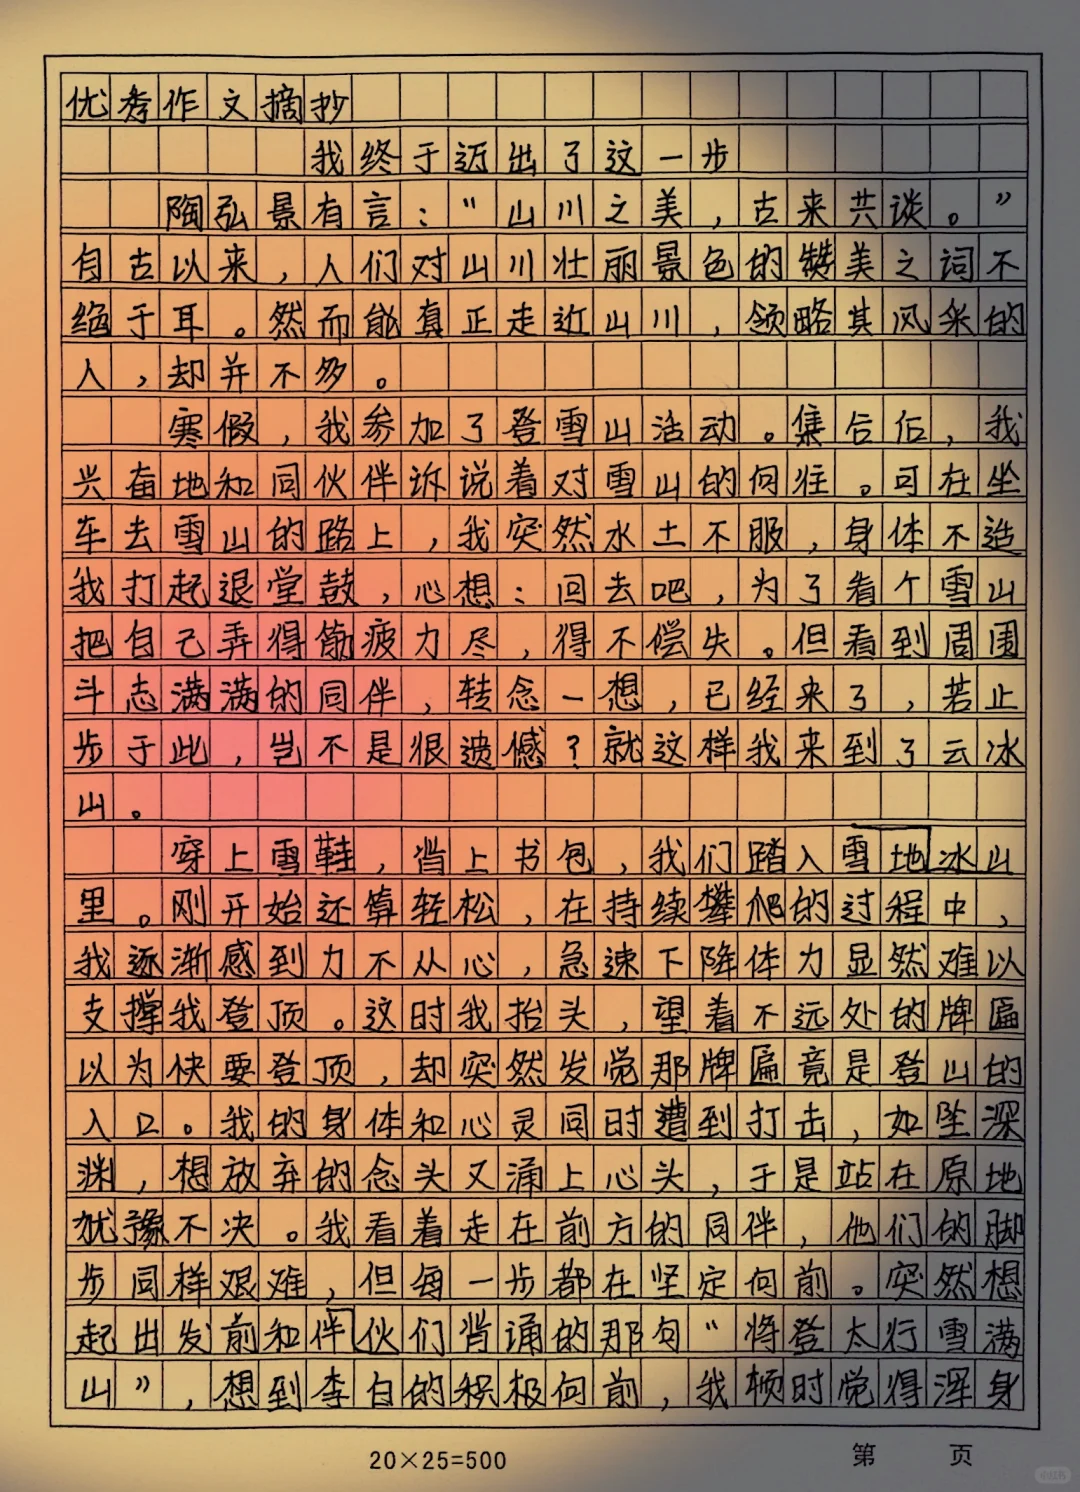 优秀作文摘抄
我终于迈出了这一步
陶弘景有言：“山川之美，古来共谈。”
自古以来，人们对山川壮丽景色的赞美之词不
绝于耳。然而能真正走近山川，领略其风采的
人，却并不多。
寒假，我参加了登雪山活动。集合后，我
兴奋地和同伙伴诉说着对雪山的向往。可在坐
车去雪山的路上，我突然水土不服，身体不适
我打起退堂鼓，心想：回去吧，为了看个雪山
把自己弄得筋疲力尽，得不偿失。但看到周围
斗志满满的同伴，转念一想，已经来了，若止
步于此，岂不是很遗憾？就这样我来到了云冰
山。
穿上雪鞋，背上书包，我们踏入雪地冰山
里。刚开始还算轻松，在持续攀爬的过程中，
我逐渐感到力不从心，急速下降体力显然难以
支撑我登顶。这时我抬头，望着不远处的牌匾
以为快要登顶，却突然发觉那牌匾竟是登山的
入口。我的身体和心灵同时遭到打击，如坠深
渊，想放弃的念头又涌上心头，于是站在原地
犹豫不决。我看着走在前方的同伴，他们的脚
步同样艰难，但每一步都在坚定向前。突然想
起出发前和伴伙们背诵的那句“将登太行雪满
山”，想到李白的积极向前，我顿时觉得浑身
20×25=500
第 页